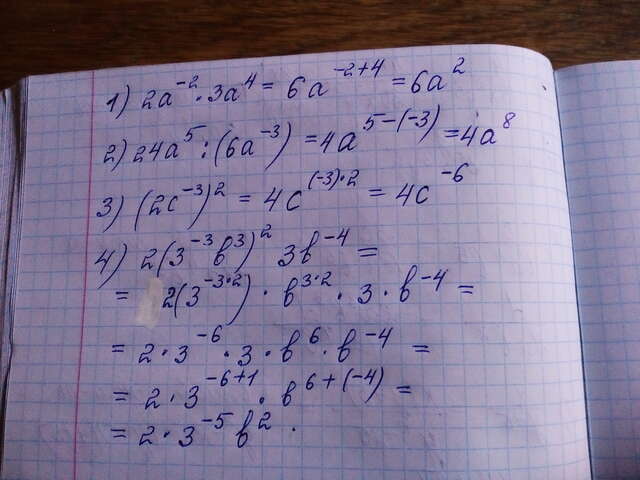 1) 2a⁻² · 3a⁴ = 6a⁻²⁺⁴ = 6a²
2) 24a⁵ : (6a⁻³) = 4a⁵⁻⁽⁻³⁾ = 4a⁸
3) (2c⁻³)² = 4c⁽⁻³⁾˙² = 4c⁻⁶
4) 2(3⁻³b³)² 3b⁻⁴ =
= 2(3⁻³˙²) · b³˙² · 3 · b⁻⁴ =
= 2 · 3⁻⁶ · 3 · b⁶ · b⁻⁴ =
= 2 · 3⁻⁶⁺¹ · b⁶⁺⁽⁻⁴⁾ =
= 2 · 3⁻⁵b² .